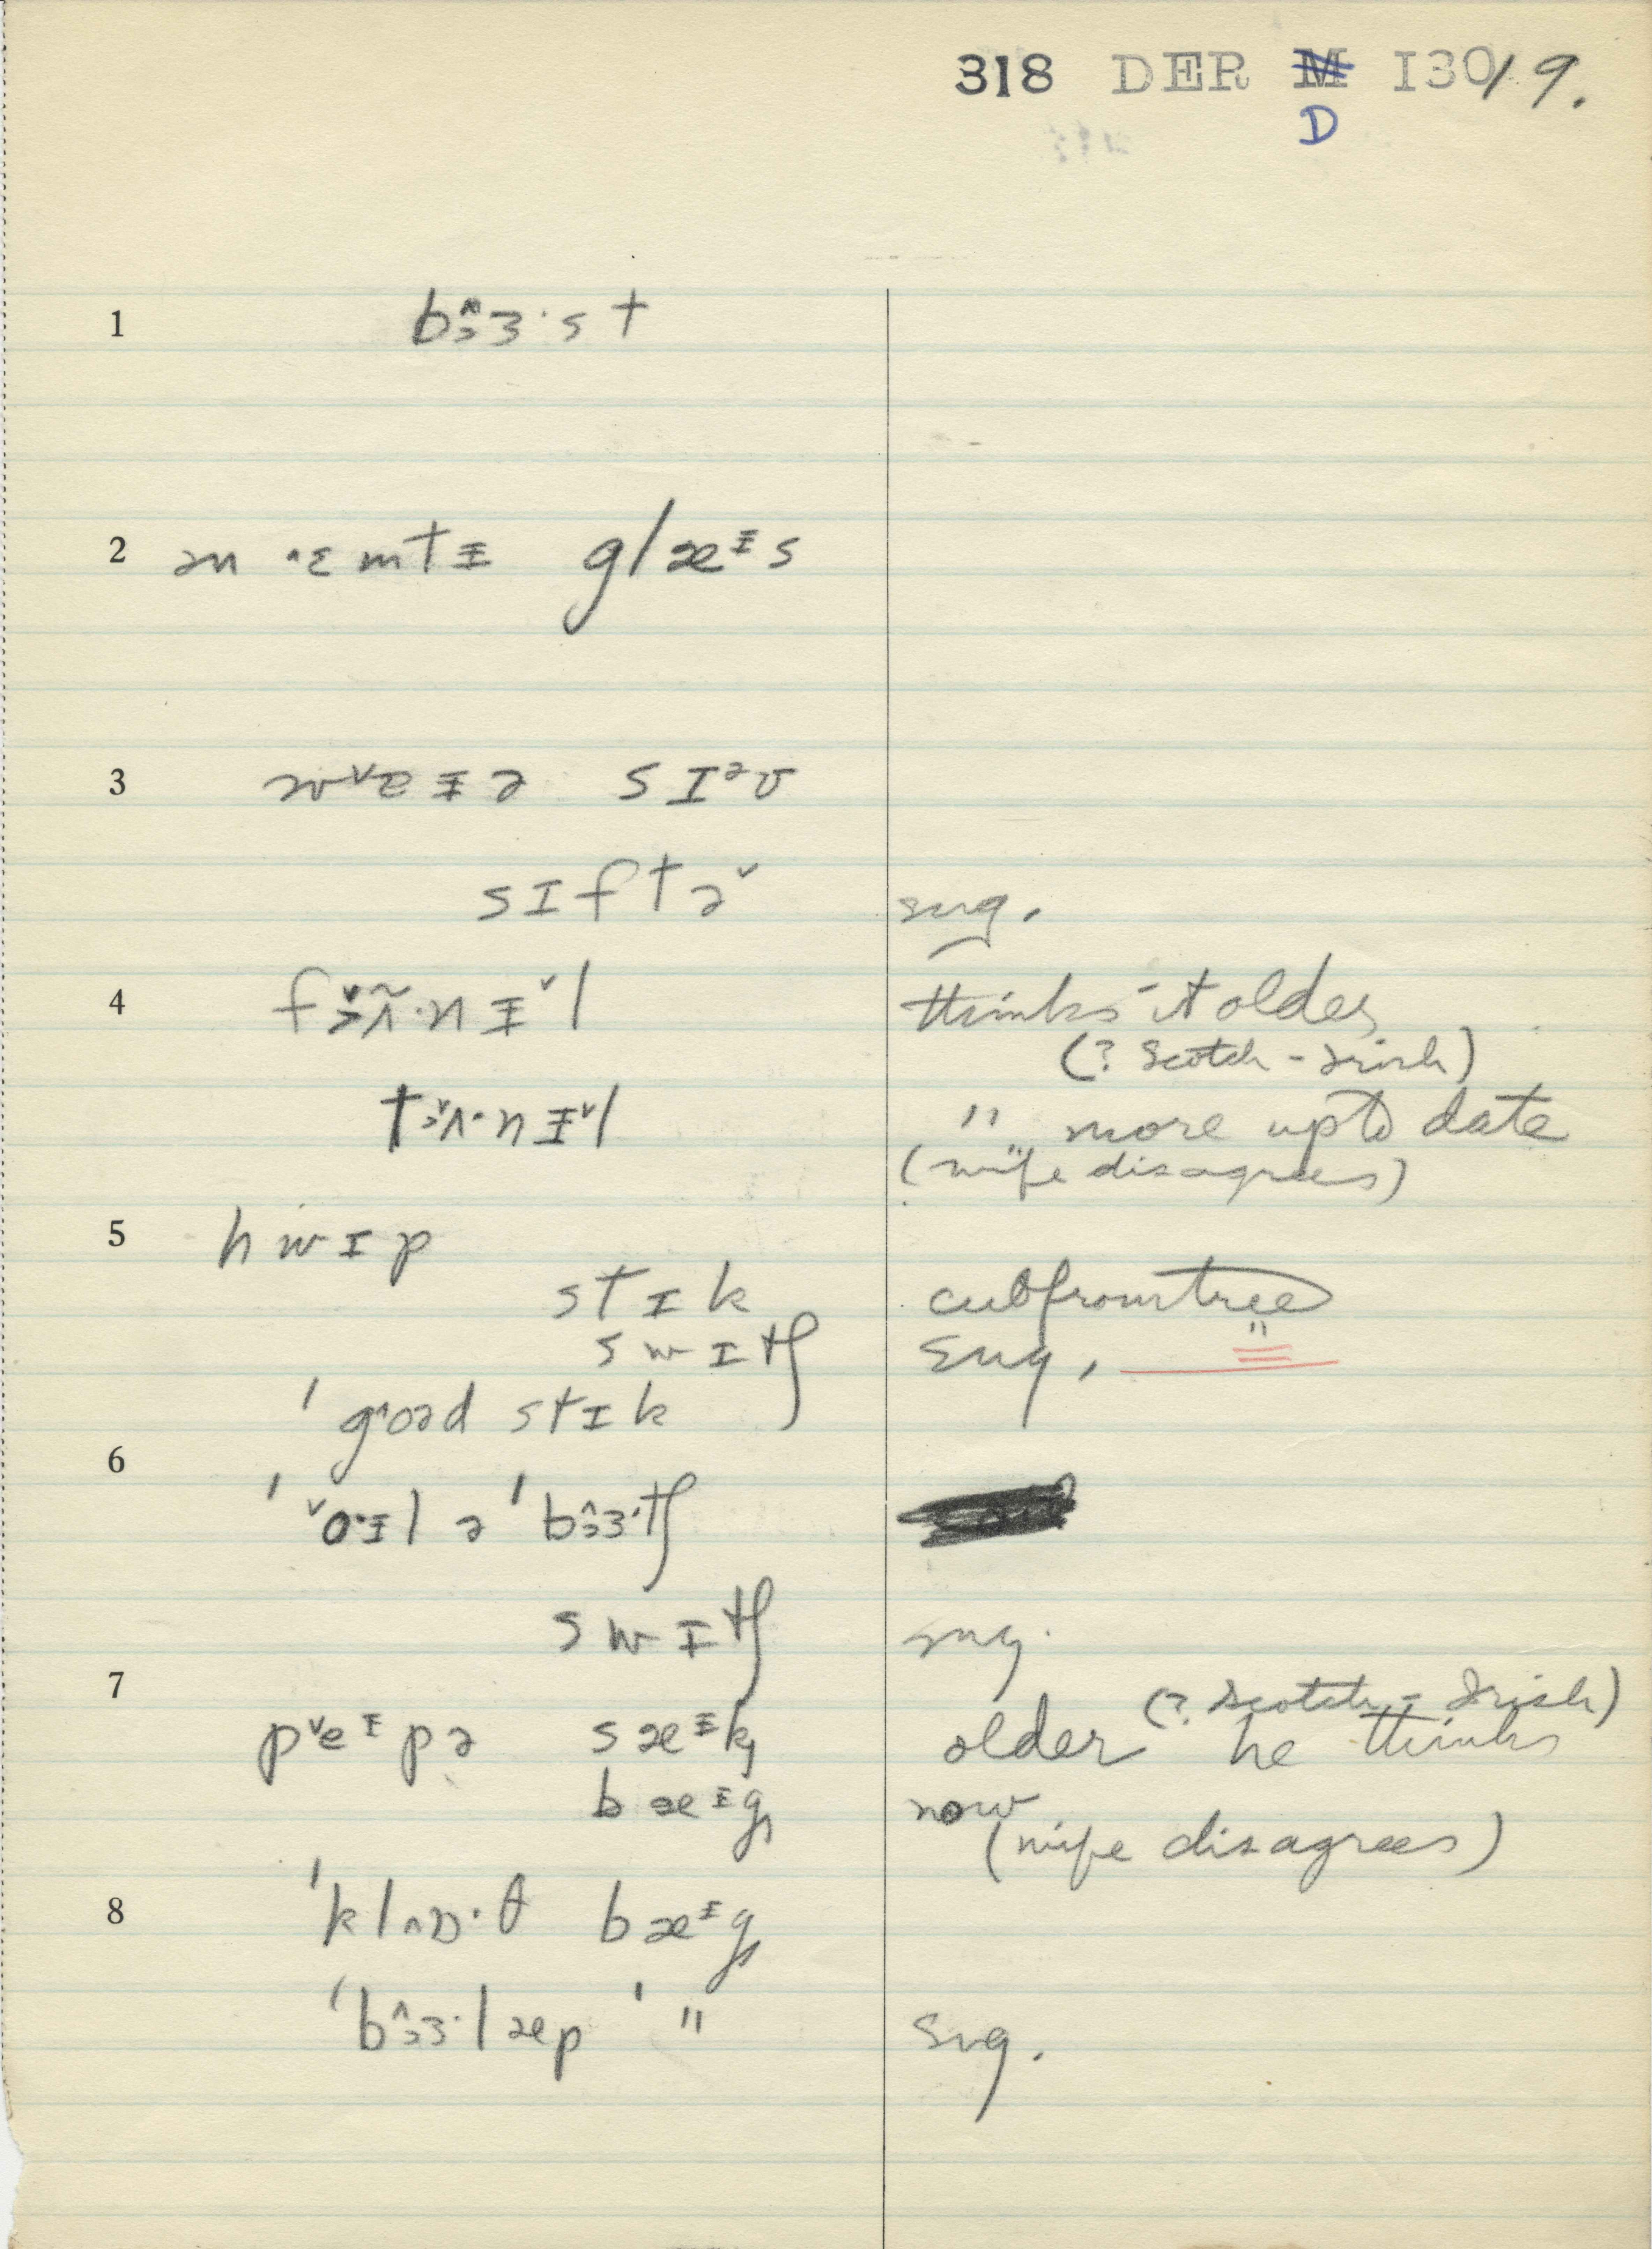 318 DER M I30/9.
D
1 b ɔ̂ɜ·s t
2 ən ˄ɛmtɨ glæᶤs
3 wᵛeɨə sɪᵊv
sɪftəᵛ sug.
4 fʌ̃·nɨᵛl thinks it older
(? Scotch-Irish)
tʌ·nɨᵛl " more up to date
(wife disagrees)
5 hwɪp
stɪk cut from tree
swɪtʃ sug. "
ˈg^oəd stɪk
6
ˈᵛo·ɨl ə ˈbɔ̂ɜ·tʃ
swɪtʃ sug.
7 (? Scotch-Irish)
pᵛeᶤpə sæᶤk older he thinks
bæᶤg now
(wife disagrees)
8 ˈkl^ɒ·θ bæᶤg
ˈbɔ̂ɜ·læp ˈ " sug.